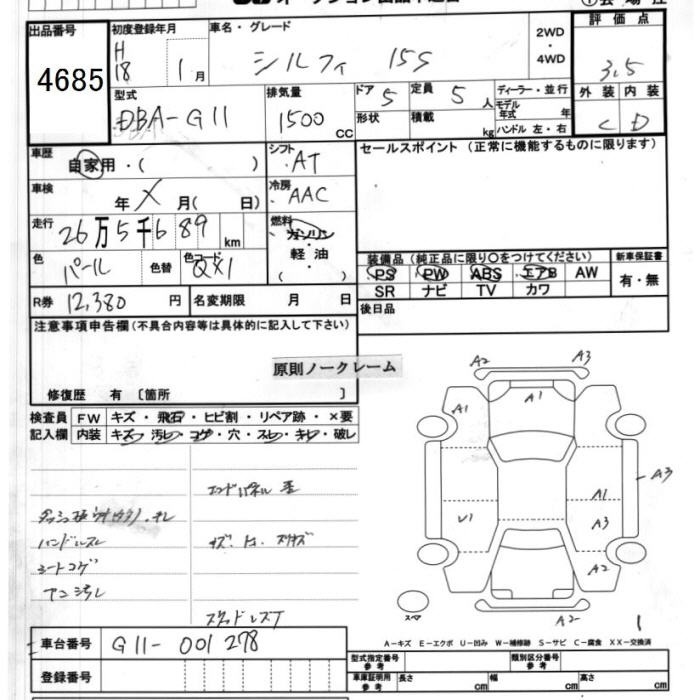 出品番号 4685
初度登録年月 H18 1月
車名・グレード シルフィ 15S
2WD・4WD
評価点 3.5
外装 C 内装 D
型式 DBA-G11
排気量 1500 CC
ドア 5 定員 5 人
形状 積載 kg
ディーラー・並行
モデル年式 年
ハンドル 左・右
車歴 自家用・( )
シフト AT
セールスポイント (正常に機能するものに限ります)
車検 年 X 月( 日)
冷房 AAC
走行 26万5千689 km
燃料 ガソリン 軽油 ( )
色 パール 色替 色コード QX1
装備品 (純正品に限り○をつけてください)
新車保証書
PS PW ABS エアB AW
有・無
SR ナビ TV カワ
R券 12,380 円 名変期限 月 日
後日品
注意事項申告欄(不具合内容等は具体的に記入して下さい)
原則ノークレーム
修復歴 有 〔箇所 〕
検査員記入欄
FW キズ・飛石・ヒビ割・リペア跡・×要
内装 キズ・汚レ・コゲ・穴・スレ・キレ・破レ
エンドパネル 歪
ハンドルスレ
シートコゲ
スタッドレスT
A2 A3
A1 A1
A3
A1
U1 A3
A2
スペア
A2
1
A-キズ E-エクボ U-凹み W-補修跡 S-サビ C-腐食 XX-交換済
車台番号 G11-001278
登録番号
型式指定番号 参考
類別区分番号 参考
車庫証明用 参考 長さ cm 幅 cm 高さ cm